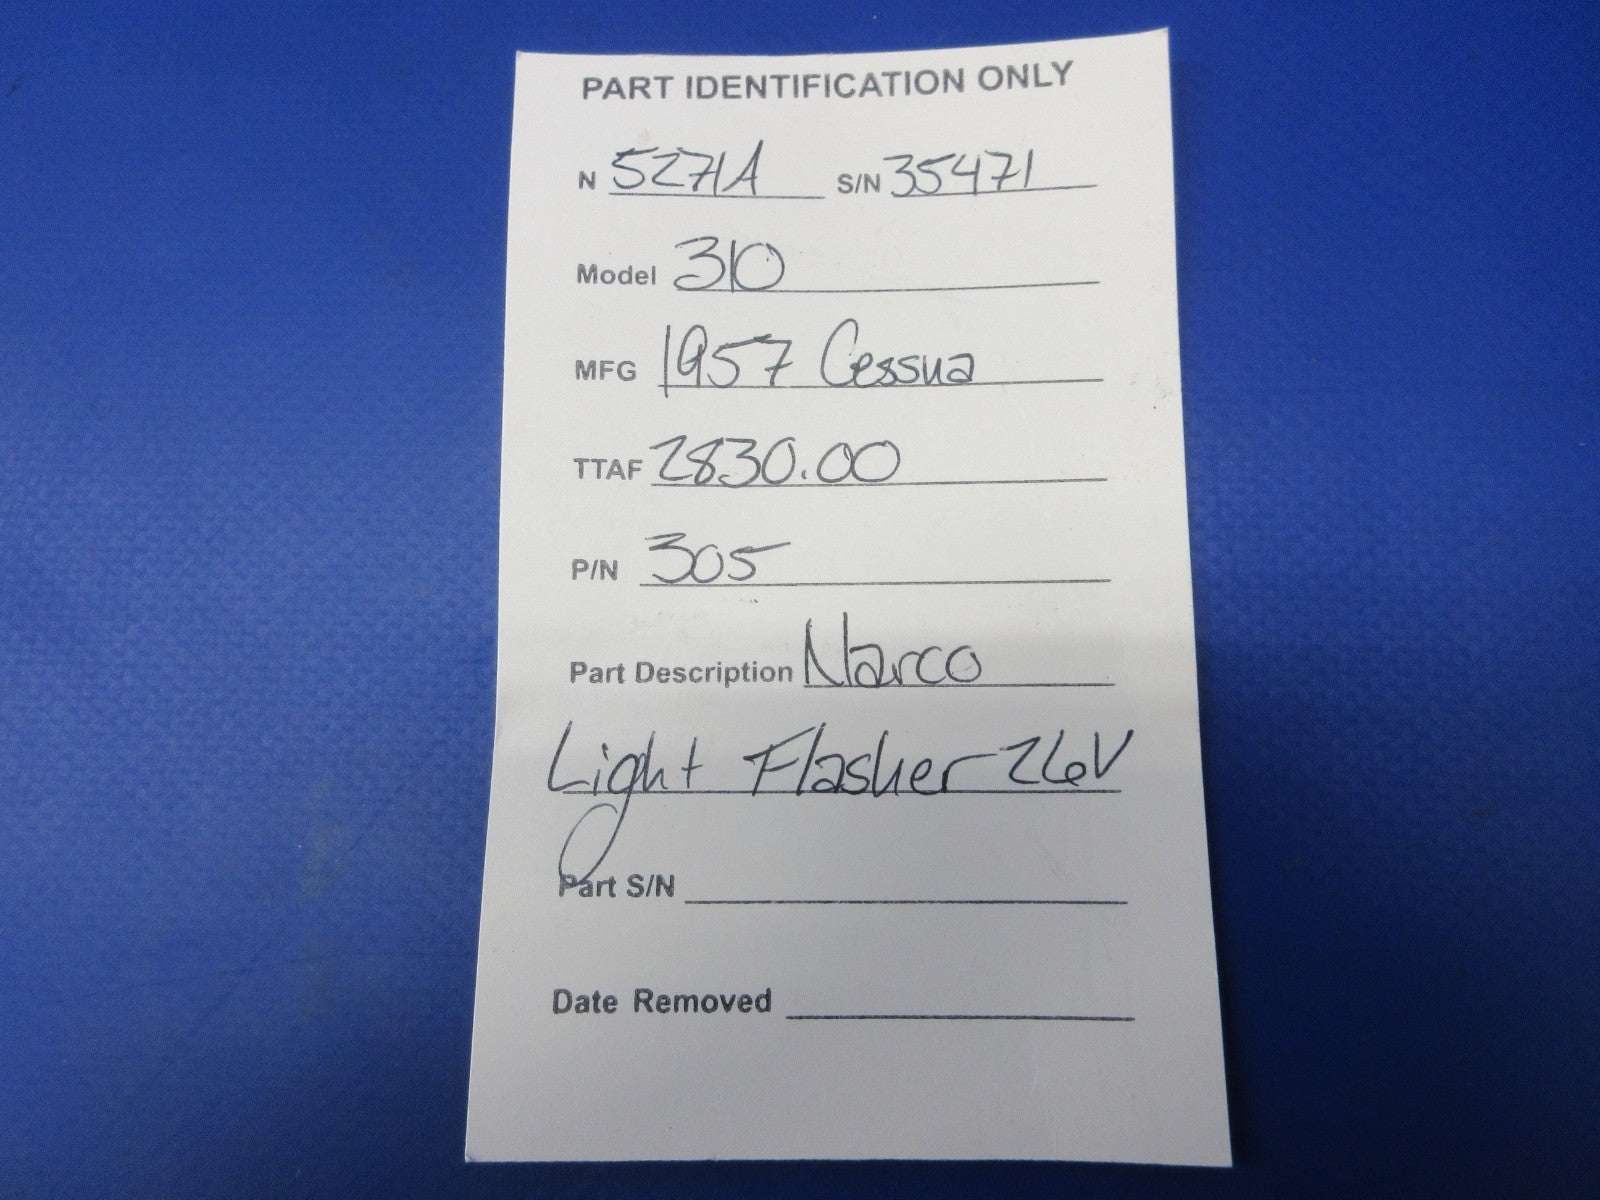 PART IDENTIFICATION ONLY
N 5271A S/N 35471
Model 310
MFG 1957 Cessna
TTAF 2830.00
P/N 305
Part Description Narco
Light Flasher 26V
Part S/N
Date Removed